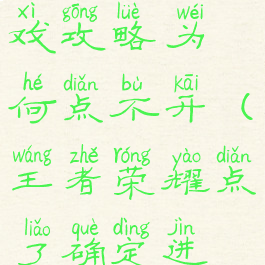 xì gōng lüè wéi
戏攻略为
hé diǎn bù kāi
何点不开（
wáng zhě róng yào diǎn
王者荣耀点
liǎo què dìng jìn
了确定进